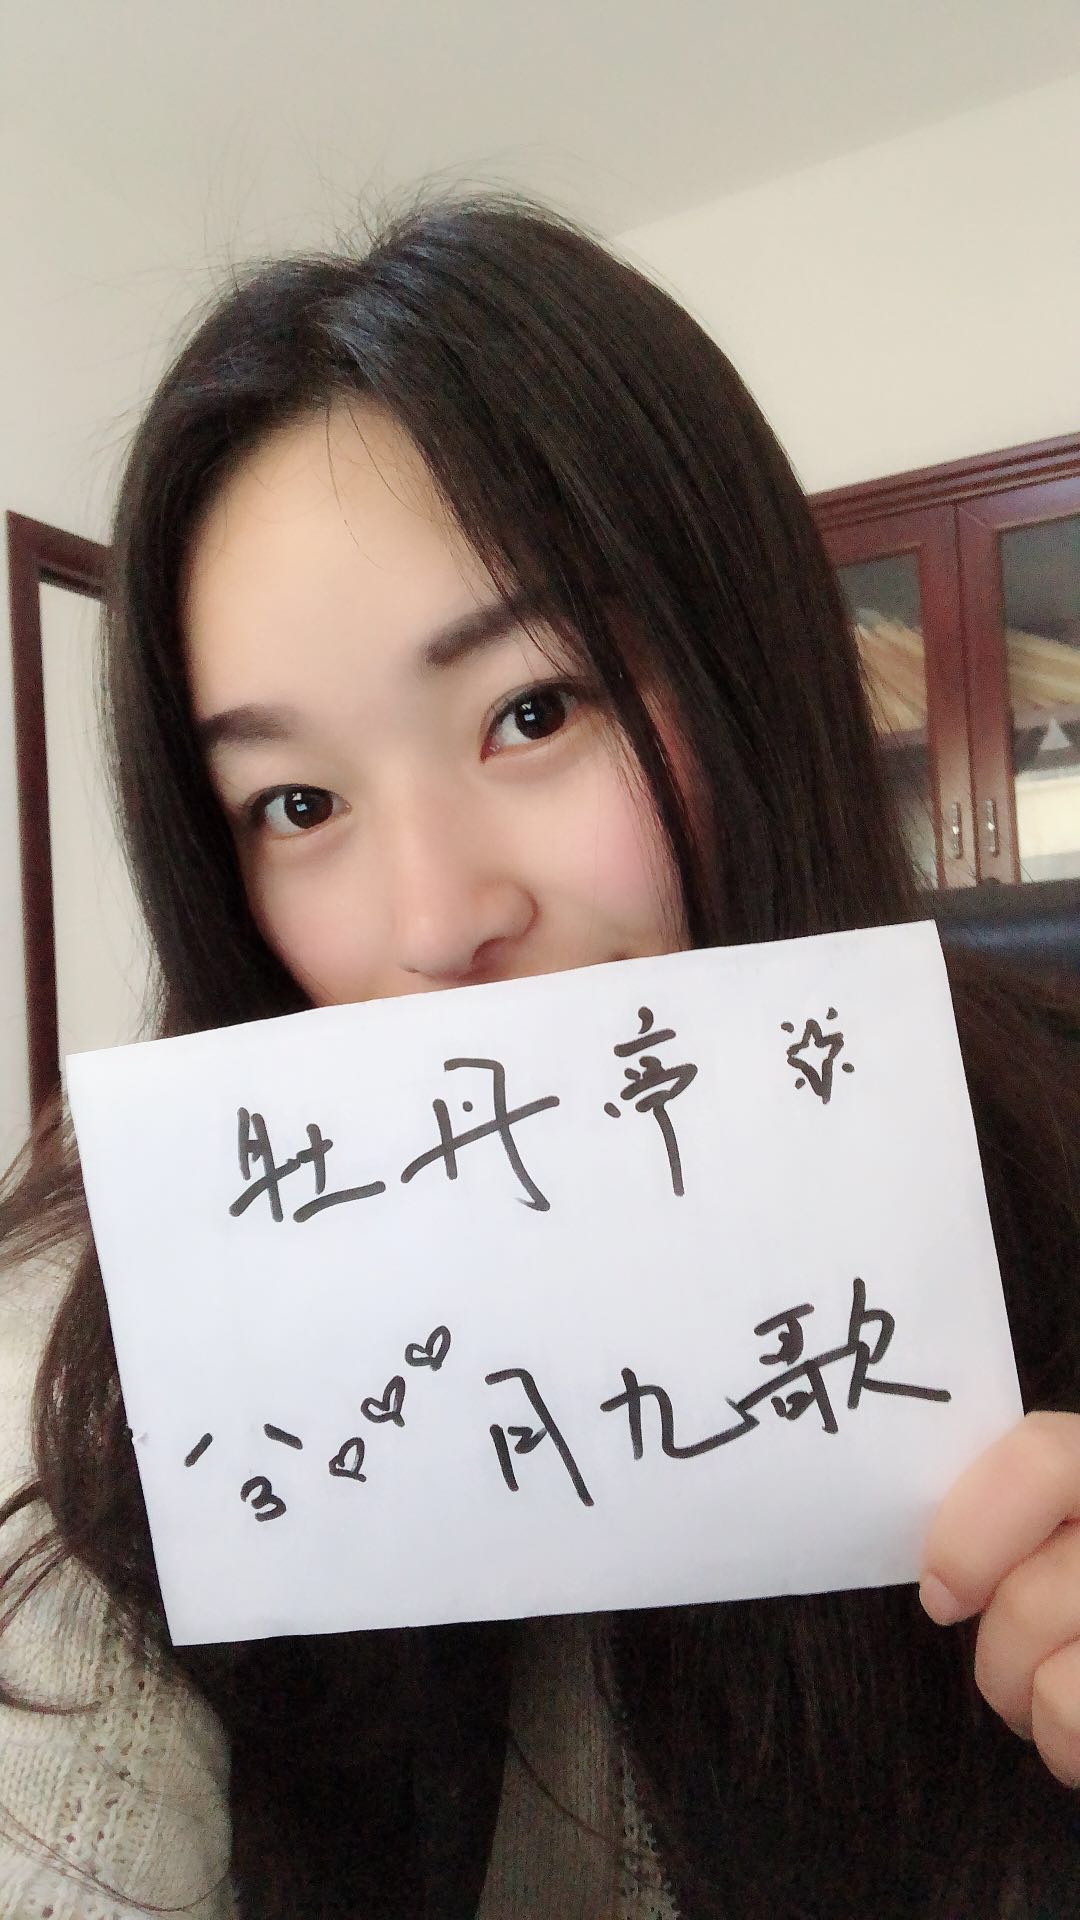 牡丹亭
月九歌